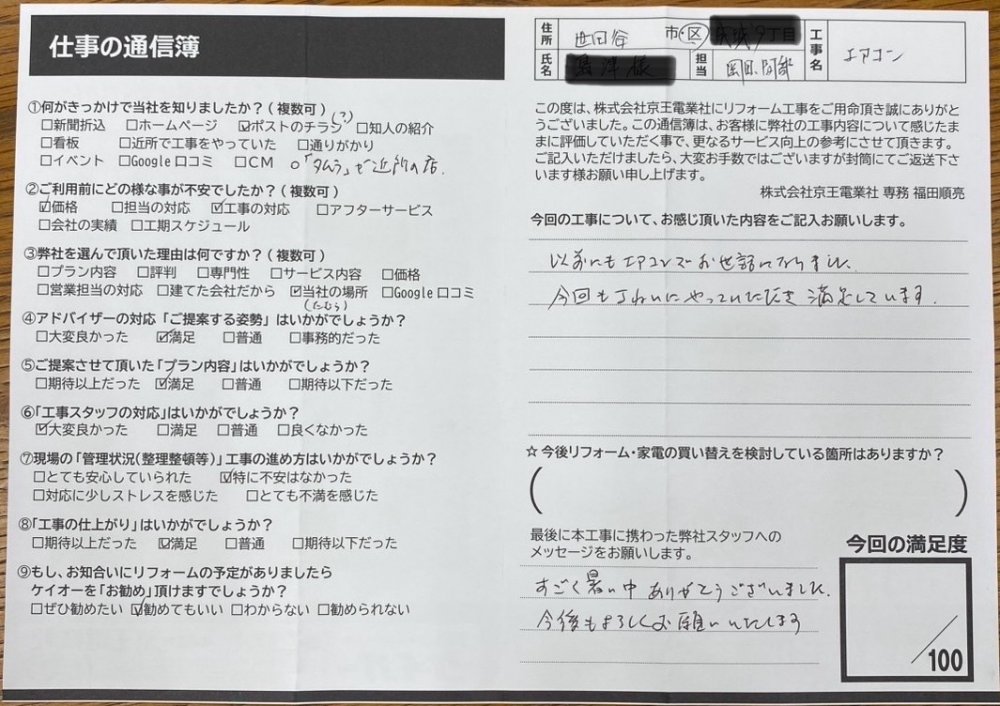 仕事の通信簿
①何がきっかけで当社を知りましたか？(複数可)
□新聞折込 □ホームページ ☑ポストのチラシ(?) □知人の紹介
□看板 □近所で工事をやっていた □通りがかり
□イベント □Google口コミ □CM ○「タムラ」で近所の店.
②ご利用前にどの様な事が不安でしたか？(複数可)
☑価格 □担当の対応 ☑工事の対応 □アフターサービス
□会社の実績 □工期スケジュール
③弊社を選んで頂いた理由は何ですか？(複数可)
□プラン内容 □評判 □専門性 □サービス内容 □価格
□営業担当の対応 □建てた会社だから ☑当社の場所 □Google口コミ
(たむら)
④アドバイザーの対応「ご提案する姿勢」はいかがでしょうか？
□大変良かった ☑満足 □普通 □事務的だった
⑤ご提案させて頂いた「プラン内容」はいかがでしょうか？
□期待以上だった ☑満足 □普通 □期待以下だった
⑥「工事スタッフの対応」はいかがでしょうか？
☑大変良かった □満足 □普通 □良くなかった
⑦現場の「管理状況(整理整頓等)」工事の進め方はいかがでしょうか？
□とても安心していられた ☑特に不安はなかった
□対応に少しストレスを感じた □とても不満を感じた
⑧「工事の仕上がり」はいかがでしょうか？
□期待以上だった ☑満足 □普通 □期待以下だった
⑨もし、お知合いにリフォームの予定がありましたら
ケイオーを「お勧め」頂けますでしょうか？
□ぜひ勧めたい ☑勧めてもいい □わからない □勧められない
住所 世田谷 市・区 9丁目
氏名 様 担当
工事名 エアコン
この度は、株式会社京王電業社にリフォーム工事をご用命頂き誠にありがと
うございました。この通信簿は、お客様に弊社の工事内容について感じたま
まに評価していただく事で、更なるサービス向上の参考にさせて頂きます。
ご記入いただけましたら、大変お手数ではございますが封筒にてご返送下さ
います様お願い申し上げます。
株式会社京王電業社 専務 福田順亮
今回の工事について、お感じ頂いた内容をご記入お願いします。
以前にもエアコンでお世話になりました.
今回もきれいにやっていただき満足しています.
☆今後リフォーム・家電の買い替えを検討している箇所はありますか？
( )
最後に本工事に携わった弊社スタッフへの
メッセージをお願いします。
すごく暑い中ありがとうございました.
今後もよろしくお願いいたします
今回の満足度
/100